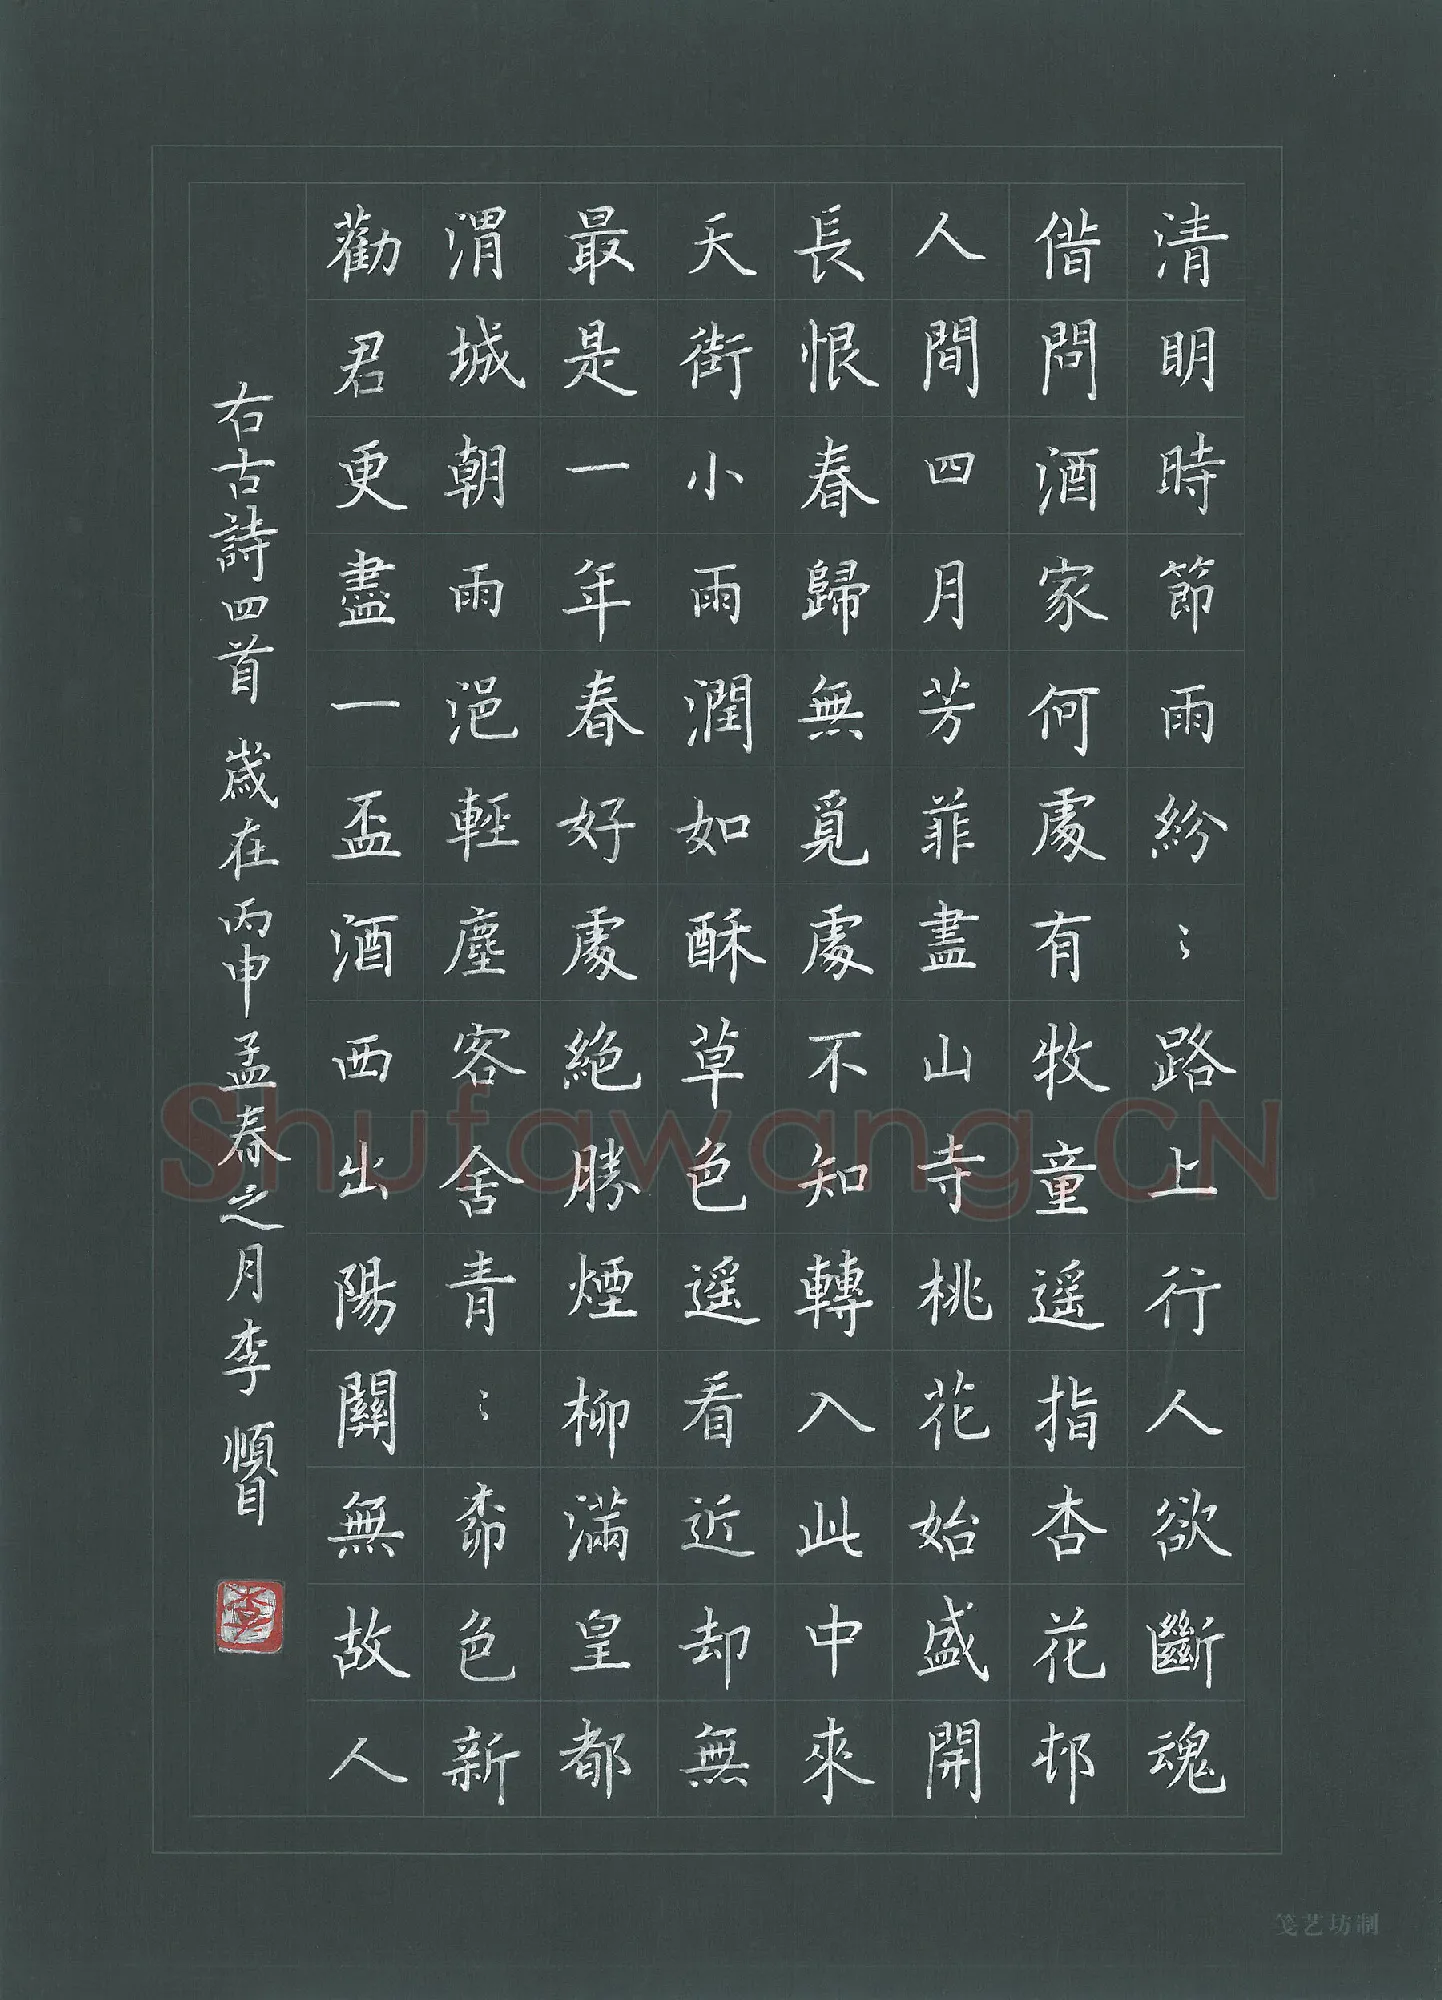 清明時節雨紛〻路上行人欲斷魂
借問酒家何處有牧童遥指杏花邨
人間四月芳菲盡山寺桃花始盛開
長恨春歸無覓處不知轉入此中來
天街小雨潤如酥草色遥看近却無
最是一年春好處絕勝煙柳滿皇都
渭城朝雨浥輕塵客舍青〻柳色新
勸君更盡一盃酒西出陽關無故人
右古詩四首 歲在丙申孟春之月李
李
Shufawang.CN
笺艺坊制